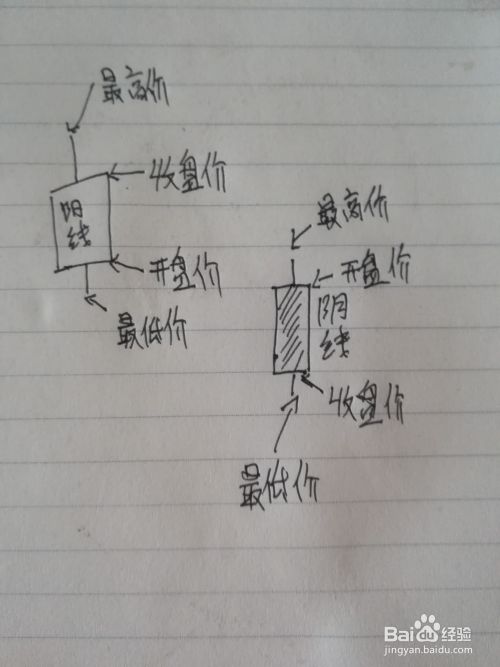 最高价
收盘价
阳
线
开盘价
最低价
最高价
开盘价
阴
线
收盘价
最低价
Baidu经验
jingyan.baidu.com